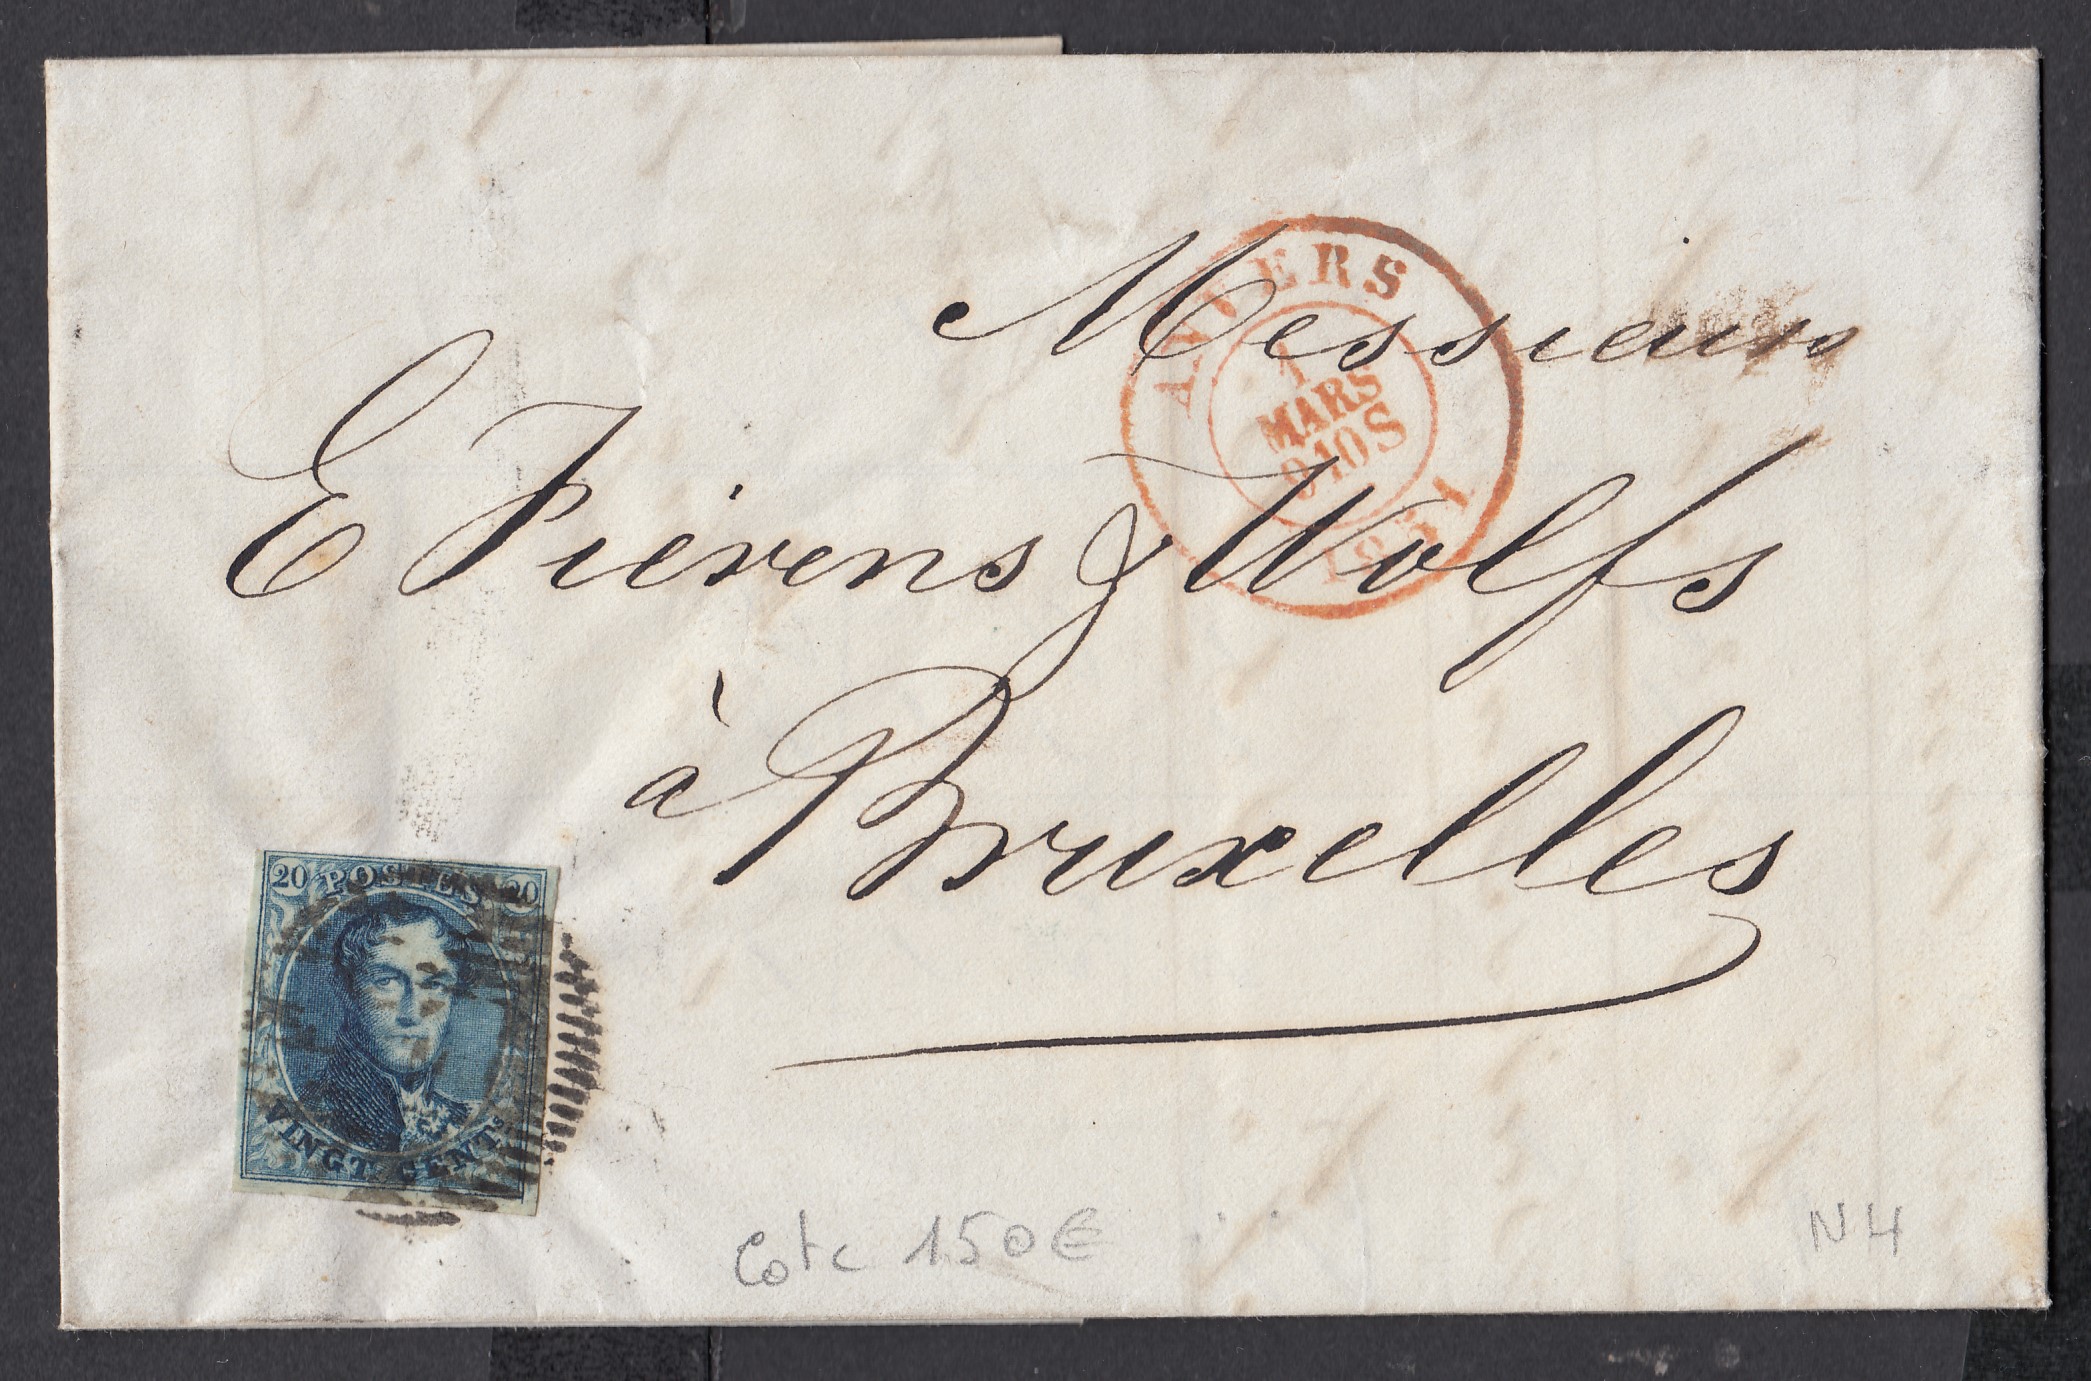 Messieurs
E Fierens & Wolfs
à Bruxelles
ANVERS
1
MARS
010S
1851
20 POSTES 20
VINGT CENTS
Cote 150€
N4